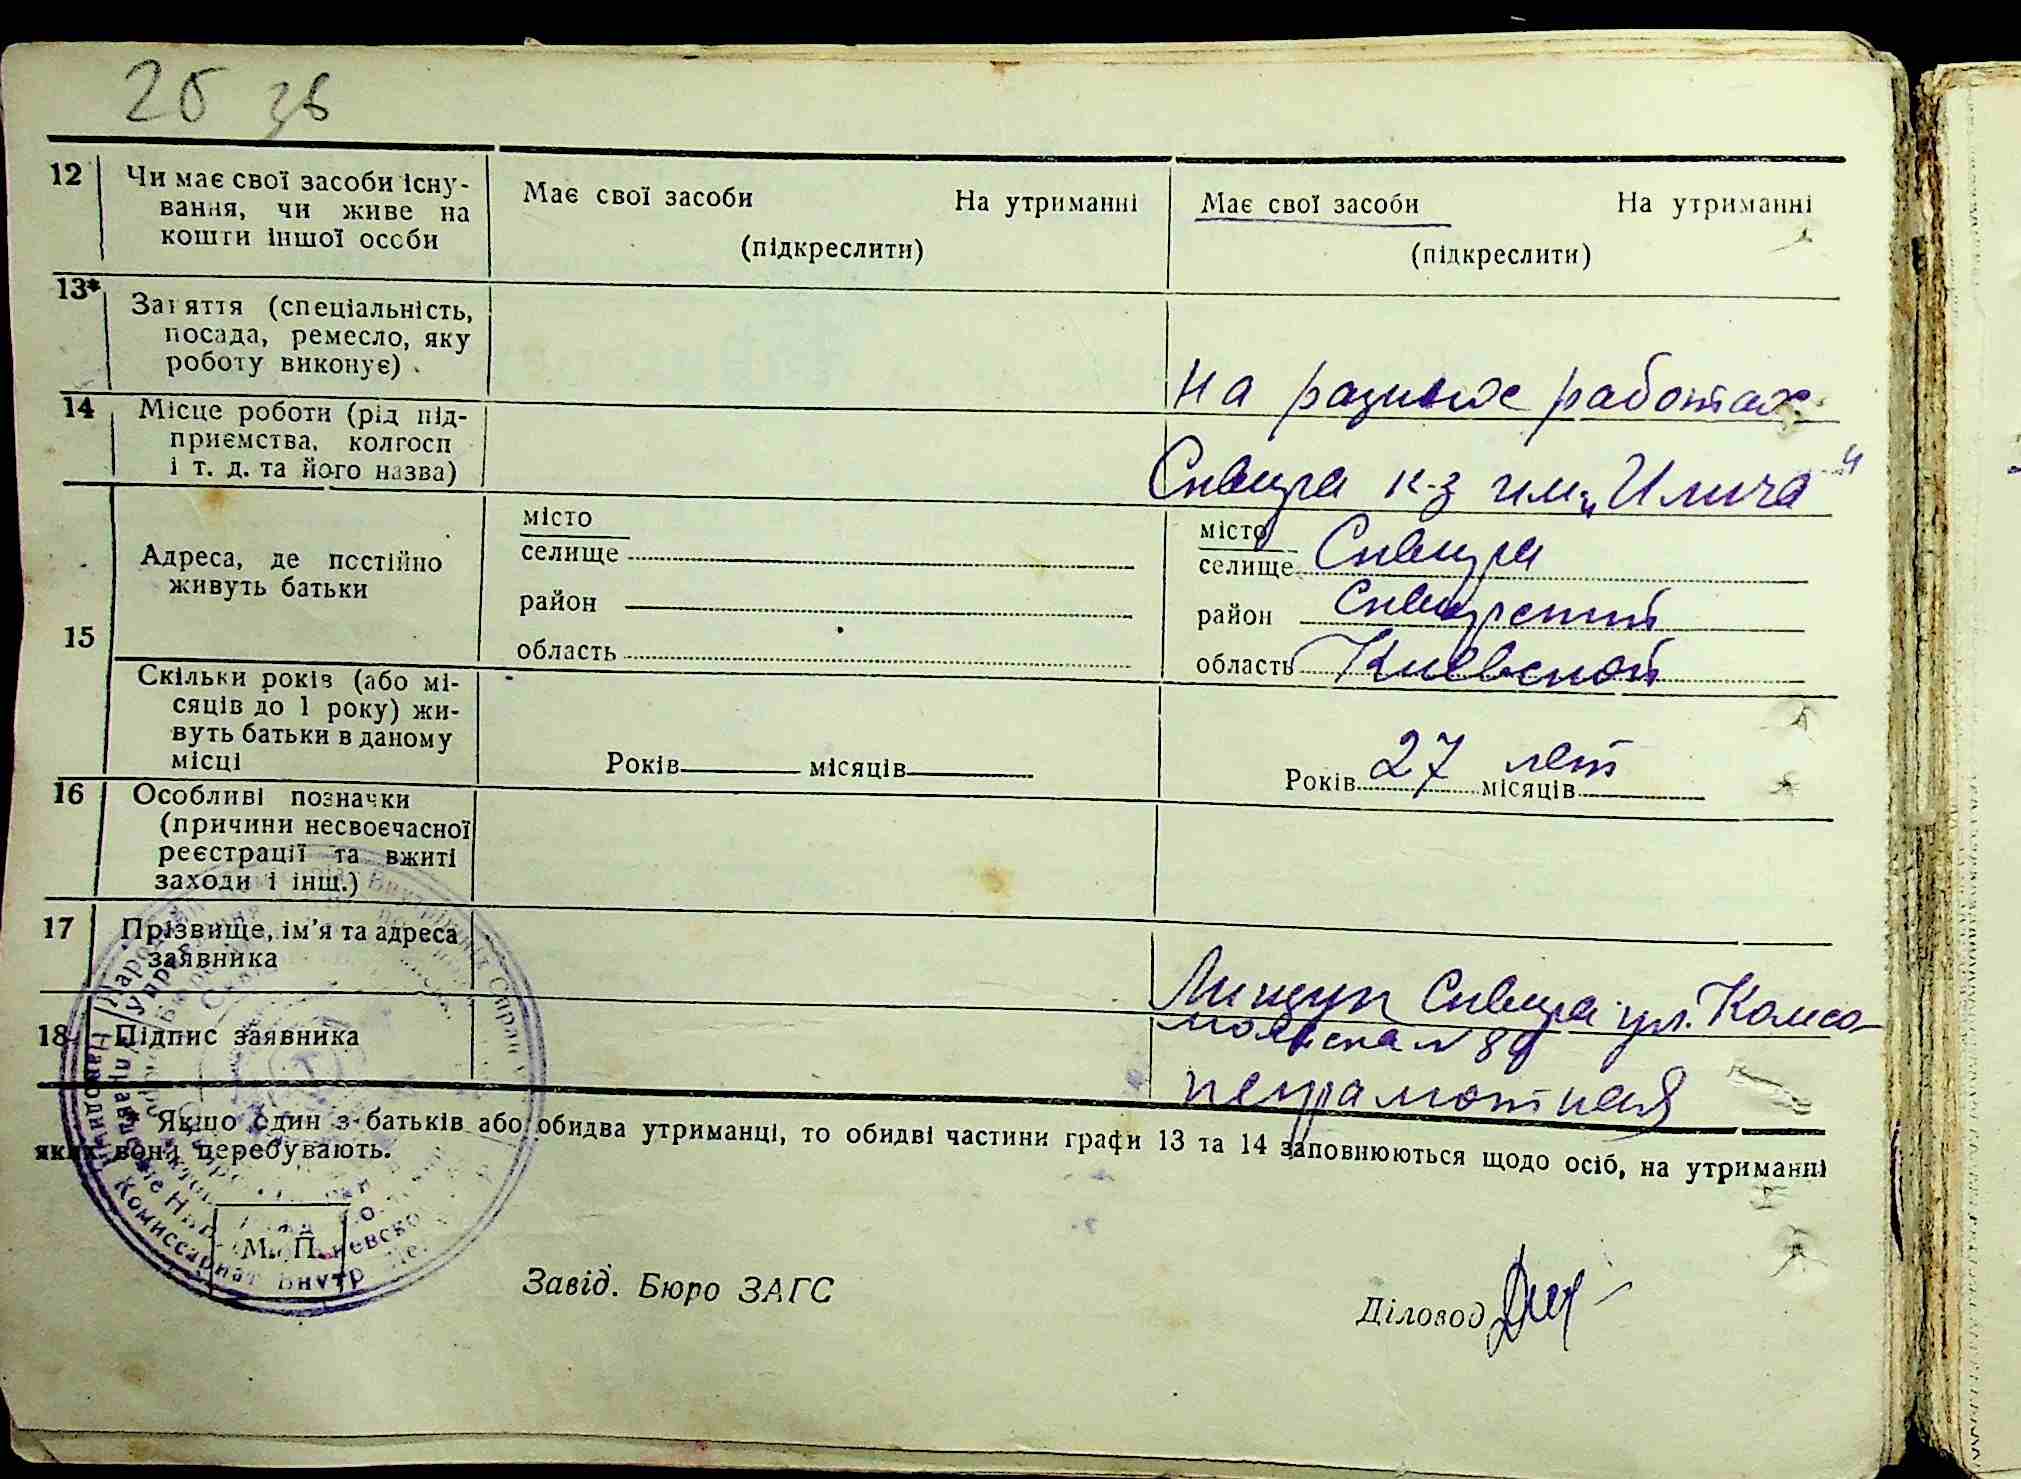 26 зв
12 Чи має свої засоби існу-
вання, чи живе на
кошти іншої особи
Має свої засоби На утриманні
(підкреслити)
Має свої засоби На утриманні
(підкреслити)
13* Заняття (спеціальність,
посада, ремесло, яку
роботу виконує)
на разных работах
14 Місце роботи (рід під-
приємства, колгосп
і т. д. та його назва)
Сквира к-з им. „Илича"
15
Адреса, де постійно
живуть батьки
місто
селище
район
область
місто
селище Сквира
район Сквирский
область Киевской
Скільки років (або мі-
сяців до 1 року) жи-
вуть батьки в даному
місці
Років місяців
Років 27 лет місяців
16 Особливі позначки
(причини несвоєчасної
реєстрації та вжиті
заходи і інш.)
17 Прізвище, ім'я та адреса
заявника
Сквира ул. Комсо-
мольска № 89
18 Підпис заявника
неграмотная
Якщо один з батьків або обидва утриманці, то обидві частини графи 13 та 14 заповнюються щодо осіб, на утриманні
яких вони перебувають.
М. П.
Комиссариат Внутр
Завід. Бюро ЗАГС
Діловод